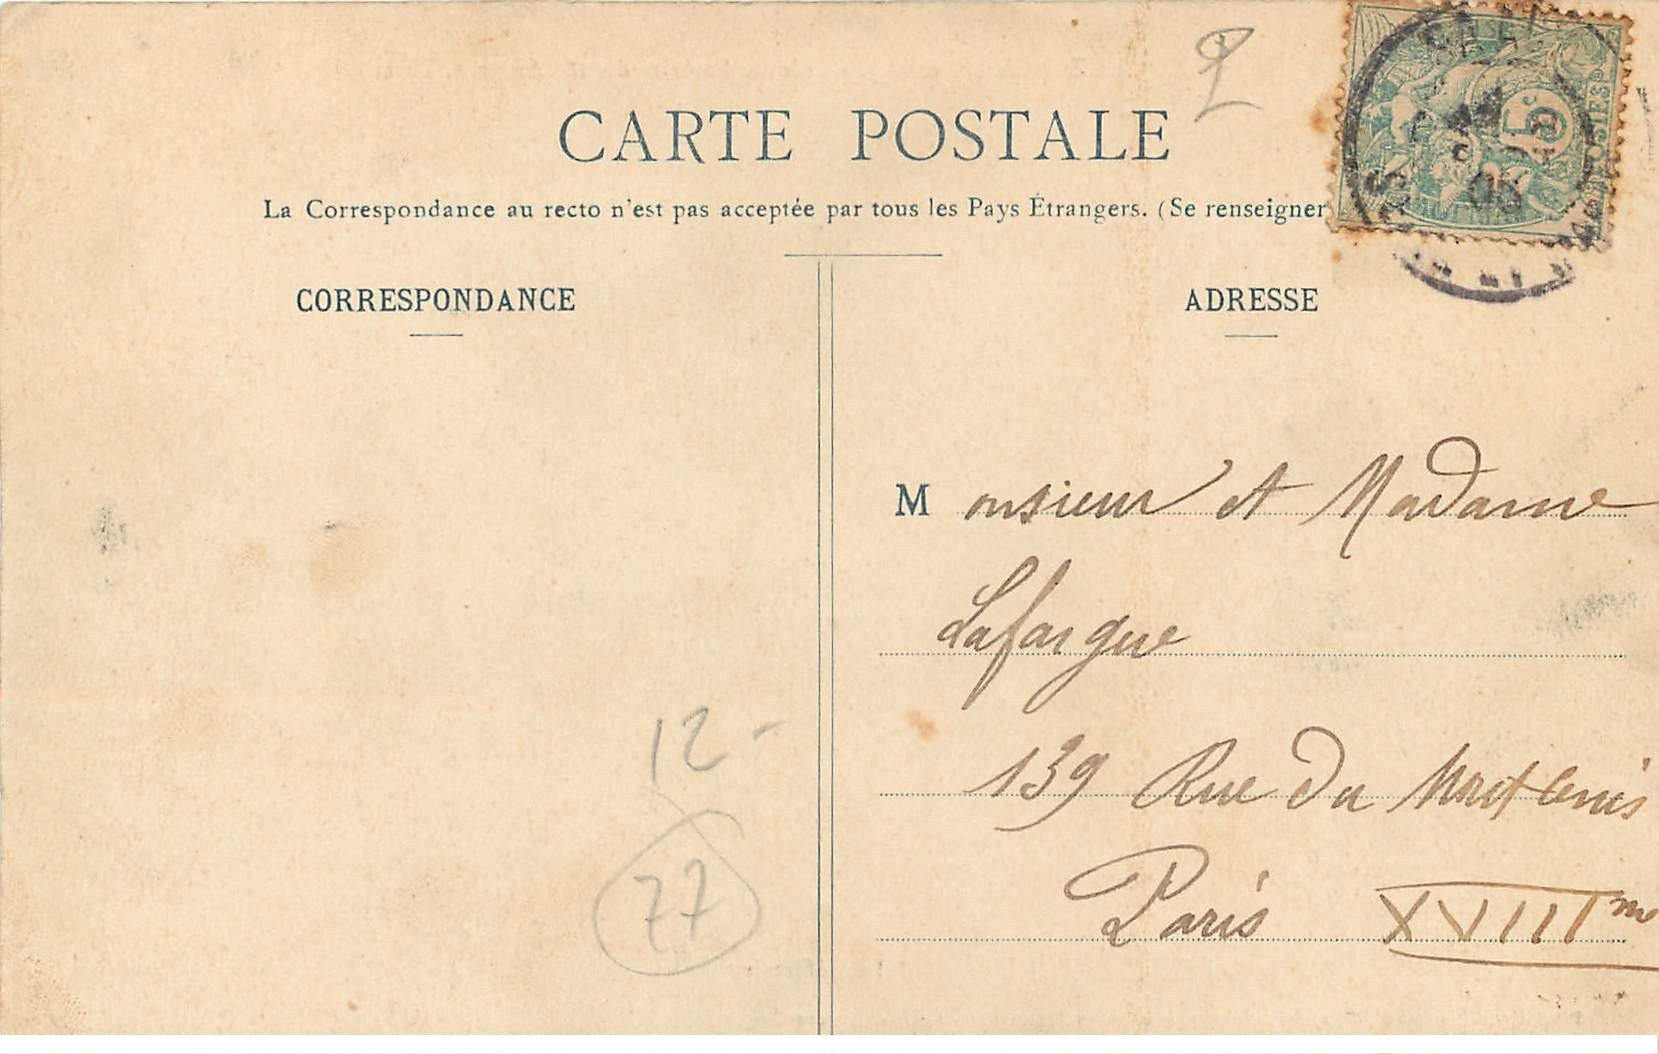 CARTE POSTALE
La Correspondance au recto n'est pas acceptée par tous les Pays Étrangers. (Se renseigner
CORRESPONDANCE
ADRESSE
5c
POSTES
Monsieur et Madame
Lafargue
139 Rue du
Paris XVIIIme
12-
77